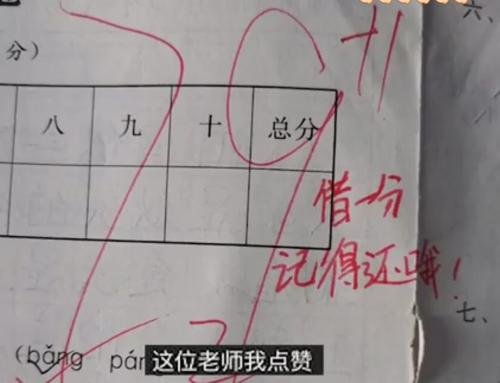 六、
分）
79+1
八 九 十 总分
借一分
记得还哦！
七、
(bǎng páng
这位老师我点赞